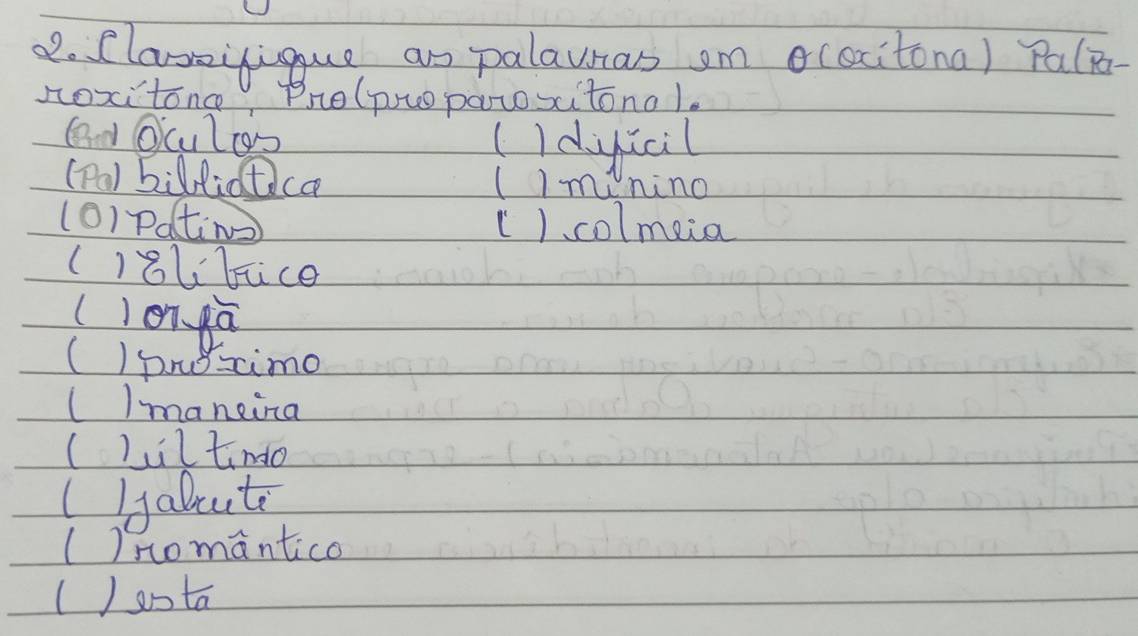 2. Classifique as palavras em O(oxítona) Pa(Pa-
roxítona, Pro(proparoxítona).
(Pro) Oculos ( ) difícil
(Pa) biblioteca ( ) minino
(O) Patins ( ) colmeia
( ) Elétrico
( ) orfã
( ) próximo
( ) maneira
( ) último
( ) jabuti
( ) romântico
( ) esta